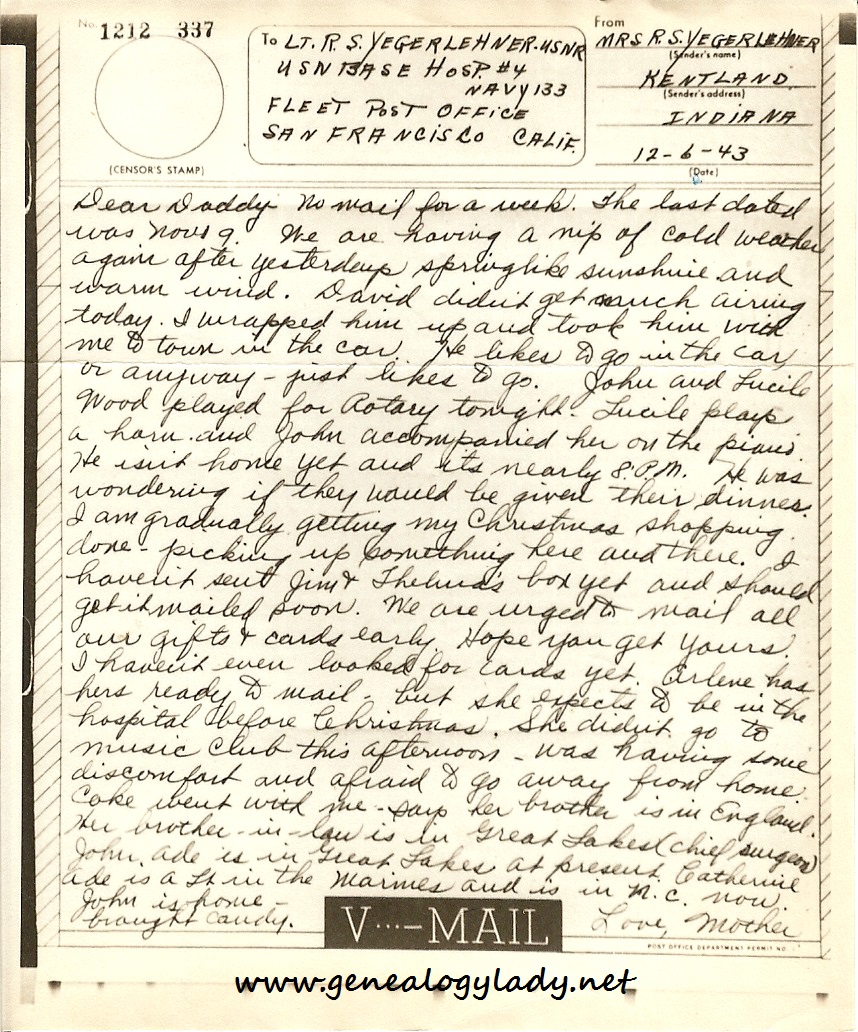 No. 1212 337
(CENSOR'S STAMP)
To LT. R. S. YEGERLEHNER-USNR
USN BASE HOSP. #4
NAVY 133
FLEET POST OFFICE
SAN FRANCISCO CALIF.
From
MRS R. S. YEGERLEHNER
(Sender's name)
KENTLAND
(Sender's address)
INDIANA
12-6-43
(Date)
Dear Daddy No mail for a week. The last dated
was Nov 19. We are having a nip of cold weather
again after yesterdays springlike sunshine and
warm wind. David didn't get much airing
today. I wrapped him up and took him with
me to town in the car. He likes to go in the car,
or anyway - just likes to go. John and Lucile
Wood played for Rotary tonight. Lucile plays
a horn and John accompanied her on the piano.
He isn't home yet and its nearly 8 P.M. He was
wondering if they would be given their dinner.
I am gradually getting my Christmas shopping
done - picking up something here and there. I
haven't sent Jim & Thelma's box yet and should
get it mailed soon. We are urged to mail all
our gifts & cards early. Hope you get yours.
I haven't even looked for cards yet. Arlene has
hers ready to mail - but she expects to be in the
hospital before Christmas. She didn't go to
music club this afternoon - was having some
discomfort and afraid to go away from home.
Coke went with me - says her brother is in England.
Her brother-in-law is in Great Lakes (chief surgeon)
John Ade is in Great Lakes at present. Catherine
Ade is a Lt in the Marines and is in N. C. now.
John is home -
brought candy.
Love, Mother
V···—MAIL
POST OFFICE DEPARTMENT PERMIT NO.
www.genealogylady.net